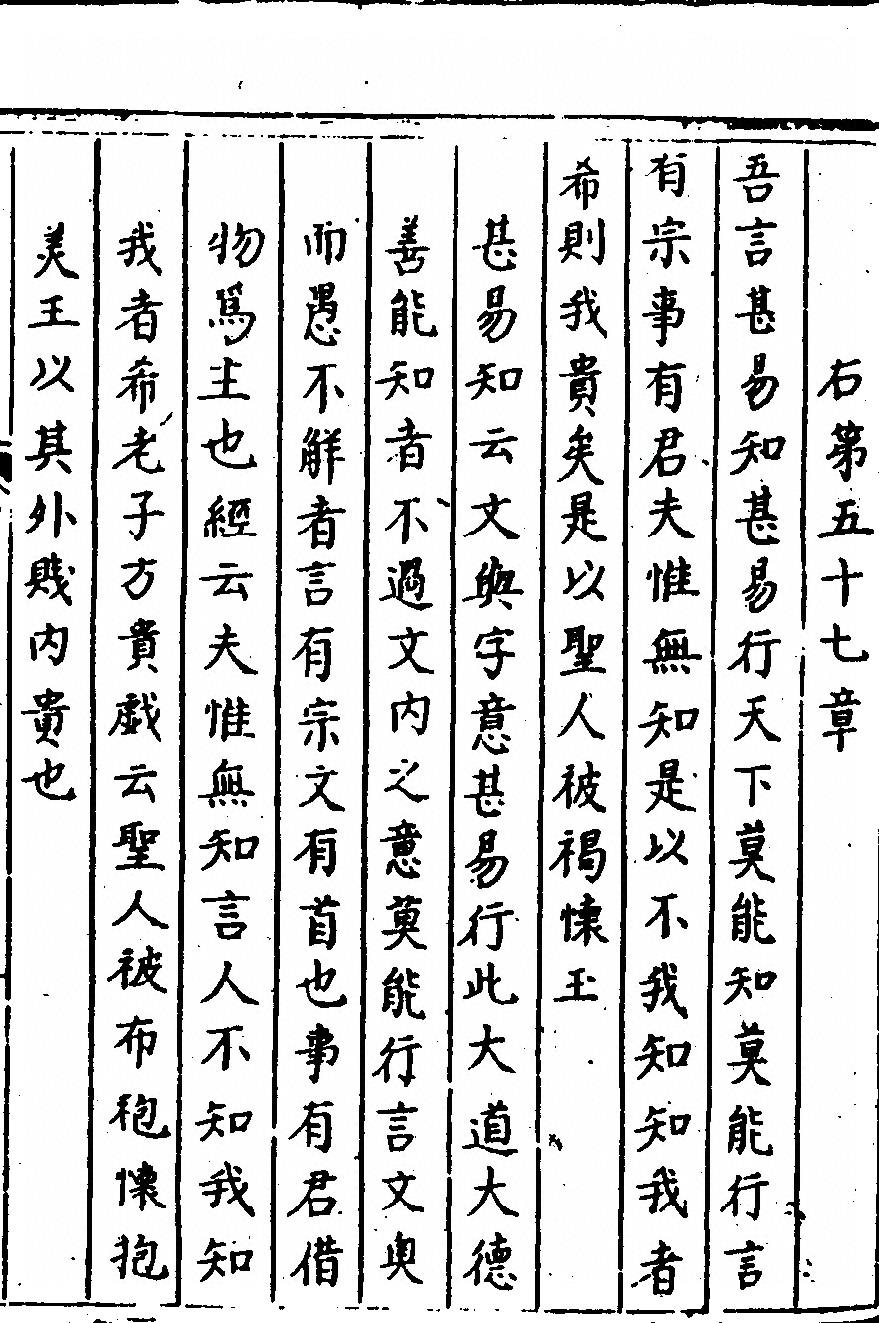 右第五十七章
吾言甚易知甚易行天下莫能知莫能行言
有宗事有君夫惟無知是以不我知知我者
希則我貴矣是以聖人被褐懐玉
甚易知云文與字意甚易行此大道大德
善能知者不過文内之意莫能行言文奥
而愚不觧者言有宗文有首也事有君借
物爲主也經云夫惟無知言人不知我知
我者希老子方貴戯云聖人被布袍懐抱
美玉以其外賤内貴也